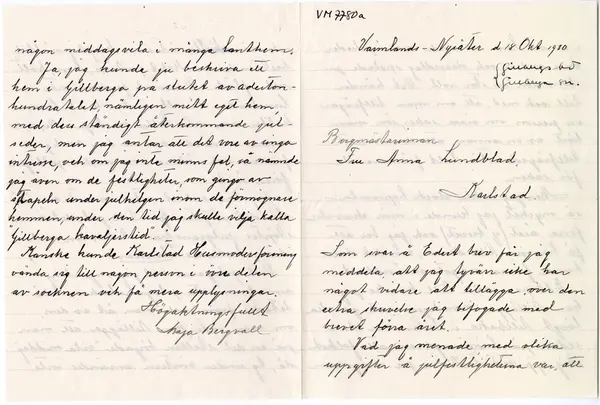 någon middagsvila i många lanthem.
Ja, jag kunde ju beskriva ett
hem i Gillberga på slutet av aderton-
hundratalet, nämligen mitt eget hem
med dess ständigt återkommande jul-
seder, men jag antar att det vore av ringa
intresse, och om jag inte minns fel, så nämnde
jag även om de festligheter, som gingo av
stapeln under julhelgen inom de förmögnare
hemmen, under den tid jag skulle vilja kalla
"Gillberga kavaljerstid".
Kanske kunde Karlstad Husmodersförening
vända sig till någon person i övre delen
av socknen och få mera upplysningar.
Högaktningsfullt
Maja Bergvall
VM 7780a
Värmlands-Nysäter d 18 Okt. 1930
Gillbergs hd
Gillberga sn.
Borgmästarinnan
Fru Anna Lundblad
Karlstad.
Som svar å Edert brev får jag
meddela, att jag tyvärr icke har
något vidare att tillägga över den
extra skrivelse jag bifogade med
brevet förra året.
Vad jag menade med olika
uppgifter å julfestligheterna var, att